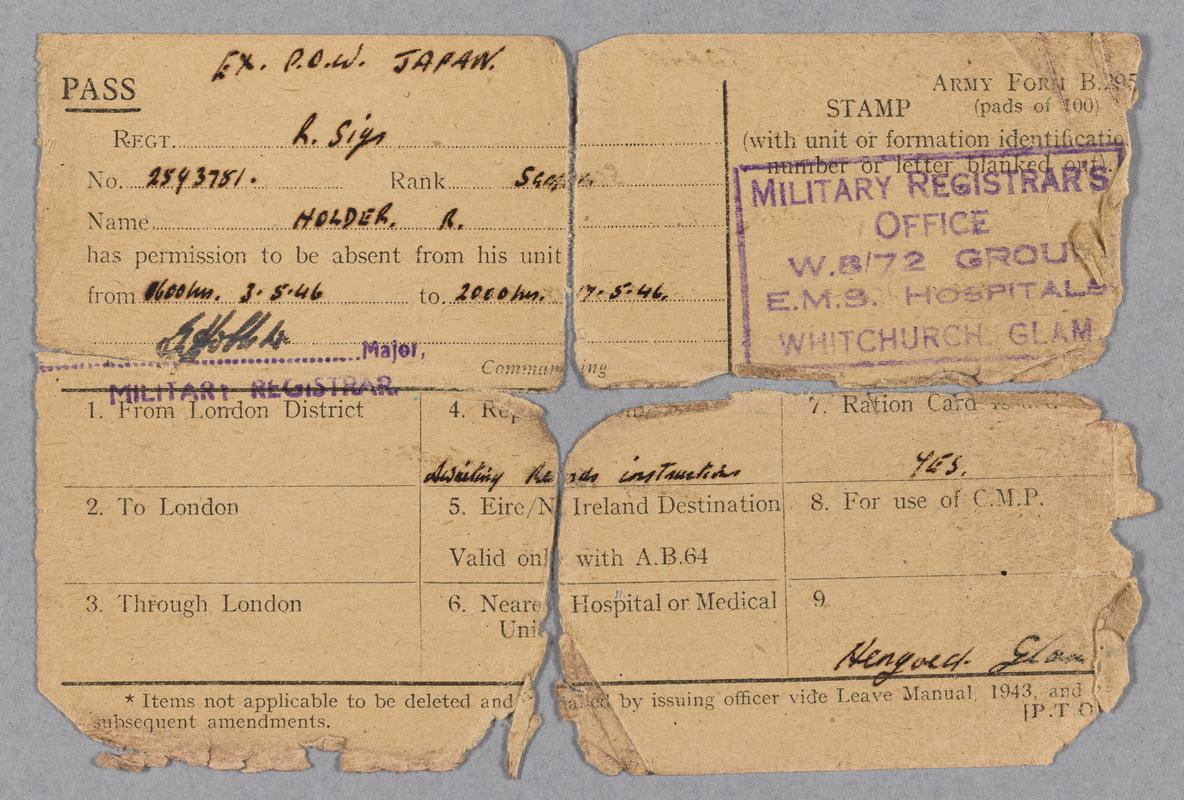 EX. P.O.W. JAPAN.
PASS
ARMY FORM B.295
(pads of 100)
STAMP
(with unit or formation identificatio
number or letter blanked out).
REGT. R. Sigs
No. 2593781. Rank
Name HOLDER. R.
has permission to be absent from his unit
from 1600 hrs. 3.5.46 to 2000 hrs. 17.5.46.
MILITARY REGISTRAR'S
OFFICE
W.8/72 GROUP
E.M.S. HOSPITALS
WHITCHURCH, GLAM
Major,
Commanding
MILITARY REGISTRAR.
1. From London District
4.
7. Ration Card issued
Awaiting Records instructions
YES.
2. To London
5. Eire/N Ireland Destination
Valid only with A.B.64
8. For use of C.M.P.
3. Through London
6. Nearest Hospital or Medical
Unit
9.
Hengoed. Glam
* Items not applicable to be deleted and initialled by issuing officer vide Leave Manual, 1943, and
subsequent amendments.
[P.T.O